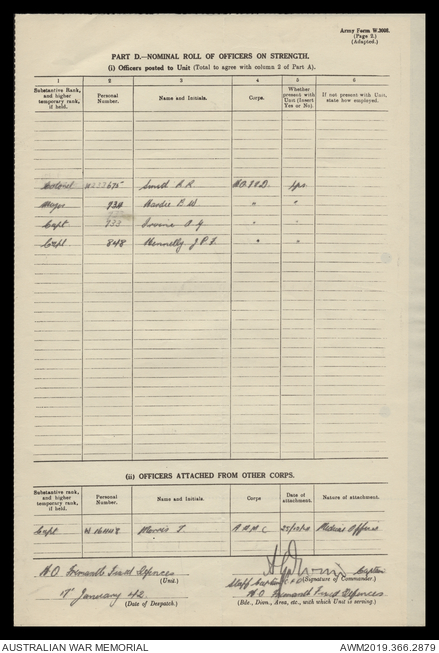 Army Form W.3008.
(Page 2.)
(Adapted.)
PART D.—NOMINAL ROLL OF OFFICERS ON STRENGTH.
(i) Officers posted to Unit (Total to agree with column 2 of Part A).
1 2 3 4 5 6
Substantive Rank, and higher temporary rank, if held. Personal Number. Name and Initials. Corps. Whether present with Unit (Insert Yes or No). If not present with Unit, state how employed.
Colonel Smith R.R.
Major 934 Hardie B.W. " "
Capt 933 " "
Capt 848 " "
(ii) OFFICERS ATTACHED FROM OTHER CORPS.
Substantive rank, and higher temporary rank, if held. Personal Number. Name and Initials. Corps Date of attachment. Nature of attachment.
Capt A.A.M.C
H.Q. Fremantle Fixed Defences
(Unit.)
Captain
(Signature of Commander.)
January 42.
(Date of Despatch.)
H.Q. Fremantle Fixed Defences
(Bde., Divn., Area, etc., with which Unit is serving.)
AUSTRALIAN WAR MEMORIAL
AWM2019.366.2879